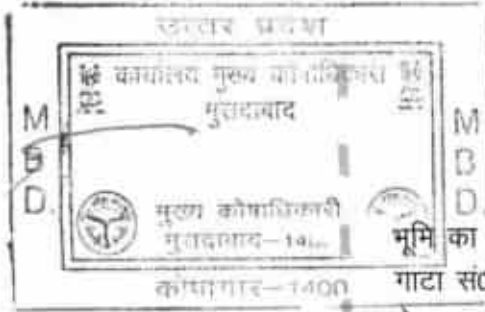 उत्तर प्रदेश
कार्यालय मुख्य कोषाधिकारी
मुरादाबाद
M
B
D.
M
B
D.
मुख्य कोषाधिकारी
मुरादाबाद-14
भूमि का
कोषागार-1400
गाटा सं0